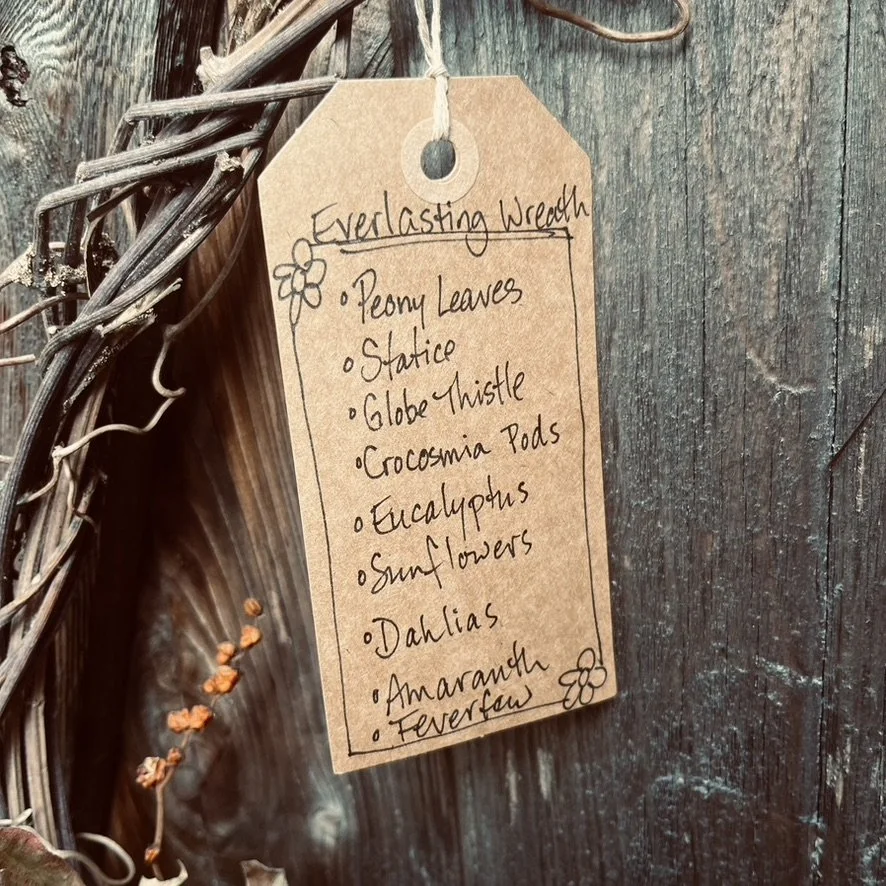 Everlasting Wreath
• Peony Leaves
• Statice
• Globe Thistle
• Crocosmia Pods
• Eucalyptus
• Sunflowers
• Dahlias
• Amaranth
• Feverfew